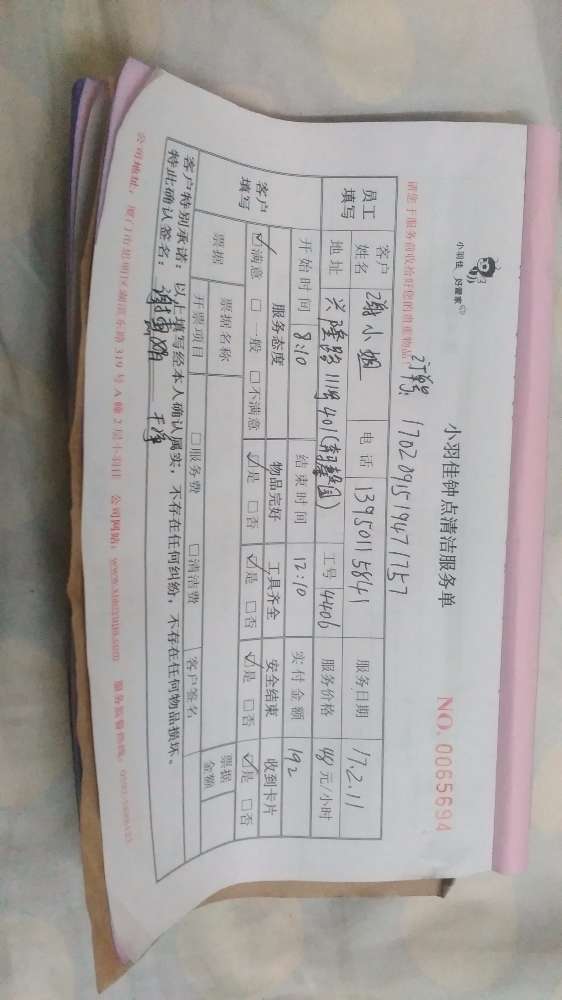 小羽佳 好管家
小羽佳钟点清洁服务单
NO. 0065694
请您于服务前收捡好您的贵重物品
订单号: 170209151947 1757
员工填写 客户姓名 谢小姐 电话 13950115841 服务日期 17.2.11
地址 兴隆路111号401( 园) 工号 4406 服务价格 48元/小时
开始时间 8:10 结束时间 12:10 实付金额 192
客户填写 服务态度 物品完好 工具齐全 安全结束 收到卡片
☑满意 □一般 □不满意 ☑是 □否 ☑是 □否 ☑是 □否 ☑是 □否
票据 票据名称 票据金额
开票项目 □服务费 □清洁费 客户签名
客户特别承诺: 以上填写经本人确认属实, 不存在任何纠纷, 不存在任何物品损坏。
特此确认签名: 谢 干净
公司地址: 厦门市思明区湖滨东路319号A幢2层小羽佳 公司网站: www.xiaoyujia.com 服务监督热线: